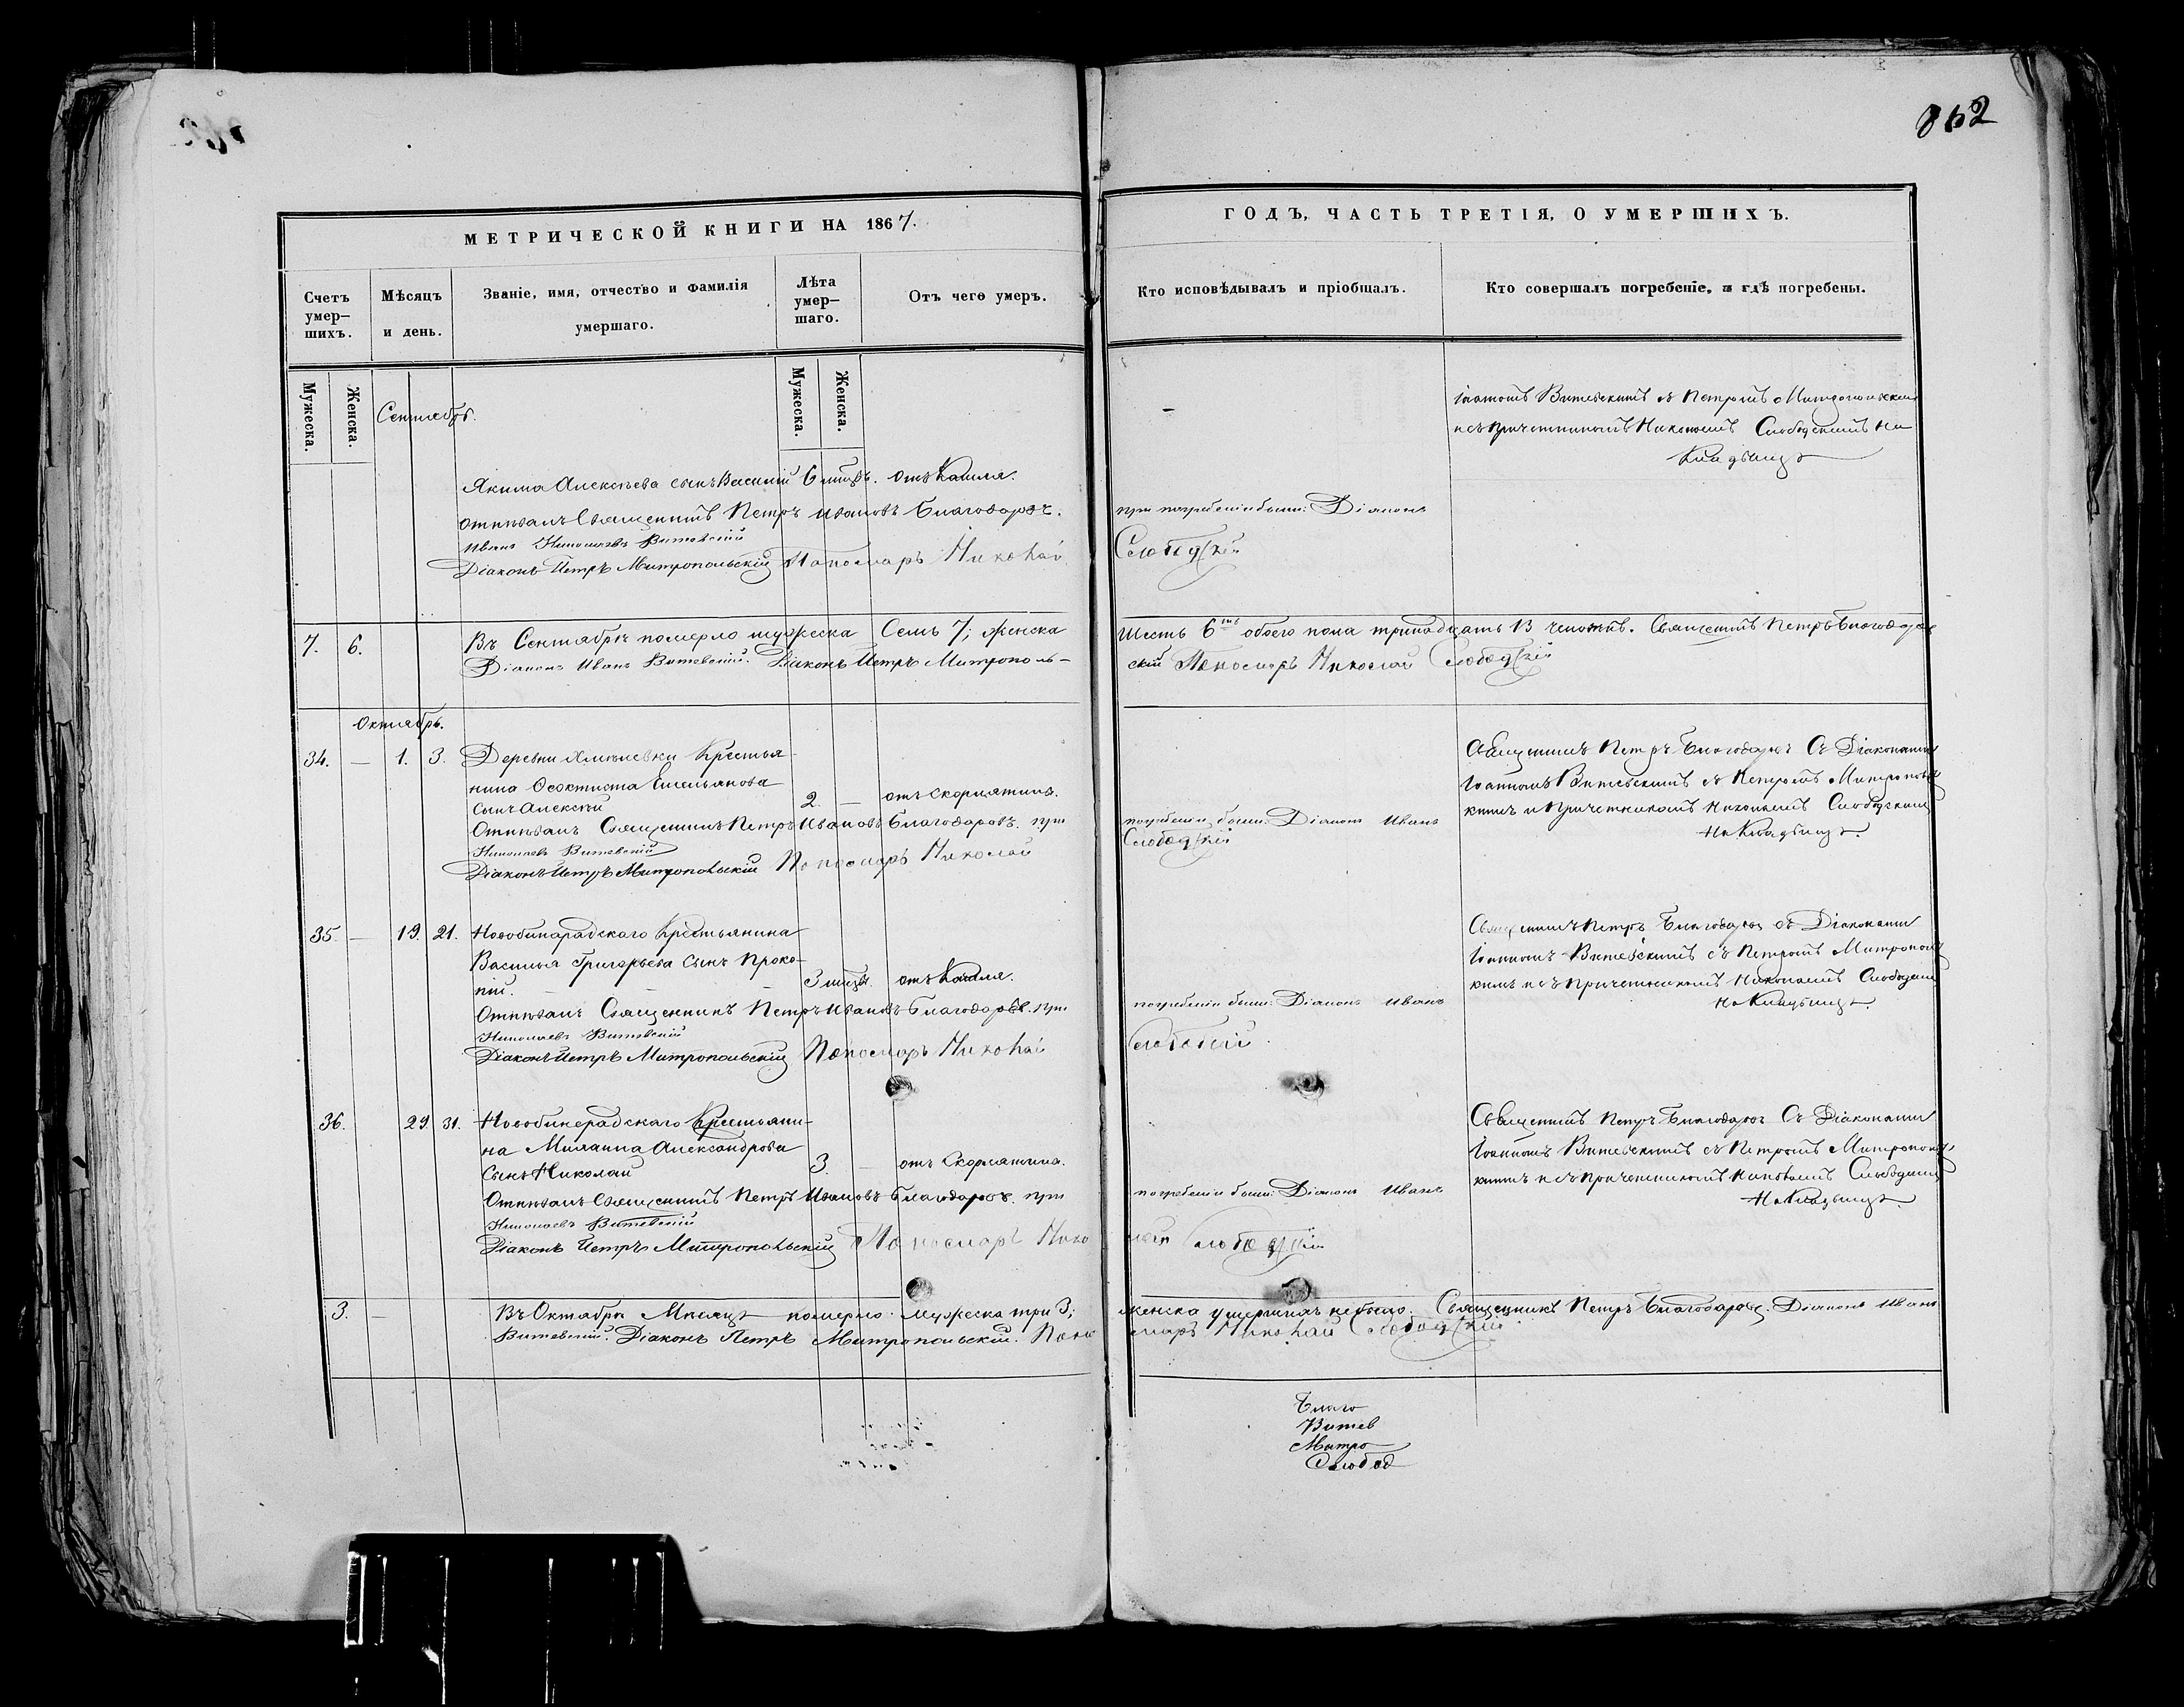 862
МЕТРИЧЕСКОЙ КНИГИ НА 1867.
Счетъ умер-шихъ.
Мѣсяцъ и день.
Званіе, имя, отчество и фамилія умершаго.
Лѣта умер-шаго.
Отъ чего умеръ.
Мужеска.
Женска.
Мужеска.
Женска.
Сентябрь.
Якима Алексѣева сынъ Василій 6 мѣсцъ. отъ Кашля.
Отпѣвалъ Священникъ Петръ Ивановъ Благодаровъ.
Иванъ Николаевъ Витевскій
Діаконъ Петръ Митропольскій Пономарь Николай
7. 6. Въ Сентябрѣ померло мужеска Семь 7; женска
Діаконъ Иванъ Витевскій. Діаконъ Петръ Митрополь-
Октябрь.
34. — 1. 3. Деревни Хмѣлевки Крестья-
нина Ѳеоктиста Емельянова
сынъ Алексѣй 2. — отъ Скорлатины.
Отпѣвалъ Священникъ Петръ Ивановъ Благодаровъ. при
Николаевъ Витевскій
Діаконъ Петръ Митропольскій Пономарь Николай
35. — 19. 21. Новобинарадскаго Крестьянина
Василья Григорьева сынъ Проко-
пій. 3 мѣсцъ. отъ Кашля.
Отпѣвалъ Священникъ Петръ Ивановъ Благодаровъ. при
Николаевъ Витевскій
Діаконъ Петръ Митропольскій Пономарь Николай
36. 29. 31. Новобинарадскаго Крестьяни-
на Александрова
сынъ Николай 3. — отъ Скорлатины.
Отпѣвалъ Священникъ Петръ Ивановъ Благодаровъ. при
Николаевъ Витевскій
Діаконъ Петръ Митропольскій Пономарь Нико
3. — Въ Октябрѣ Мѣсяцѣ померло мужеска три 3;
Витевскій. Діаконъ Петръ Митропольскій. Поно
ГОДЪ, ЧАСТЬ ТРЕТІЯ, О УМЕРШИХЪ.
Кто исповѣдывалъ и пріобщалъ.
Кто совершалъ погребеніе, и гдѣ погребены.
Іоанномъ Витевскимъ съ Петромъ Митропольскимъ
и съ причетникомъ Николаемъ Слободскимъ На
Кладбищѣ
при погребеніи были: Діаконъ
Слободскій
Шесть 6ть обоего пола тринадцать 13 человѣкъ. Священникъ Петръ Благодаровъ
скій Пономарь Николай Слободскій
Священникъ Петръ Благодаровъ Съ Діаконами
Іоанномъ Витевскимъ съ Петромъ Митрополь
скимъ и Причетникомъ Николаемъ Слободскимъ
На Кладбищѣ.
погребеніи были: Діаконъ Иванъ
Слободскій
Священникъ Петръ Благодаровъ съ Діаконами
Іоанномъ Витевскимъ съ Петромъ Митрополь
скимъ и съ Причетникомъ Николаемъ Слободским
На Кладбищѣ.
погребеніи были: Діаконъ Иванъ
Священникъ Петръ Благодаровъ Съ Діаконами
Іоанномъ Витевскимъ съ Петромъ Митрополь
скимъ и съ Причетникомъ Николаемъ Слободским
На Кладбищѣ.
погребеніи были: Діаконъ Иванъ
лай Слободскій
женска умершихъ не было. Священникъ Петръ Благодаровъ. Діаконъ Иванъ
марь Николай Слободскій
Благо
Витев
Митро
Слобод